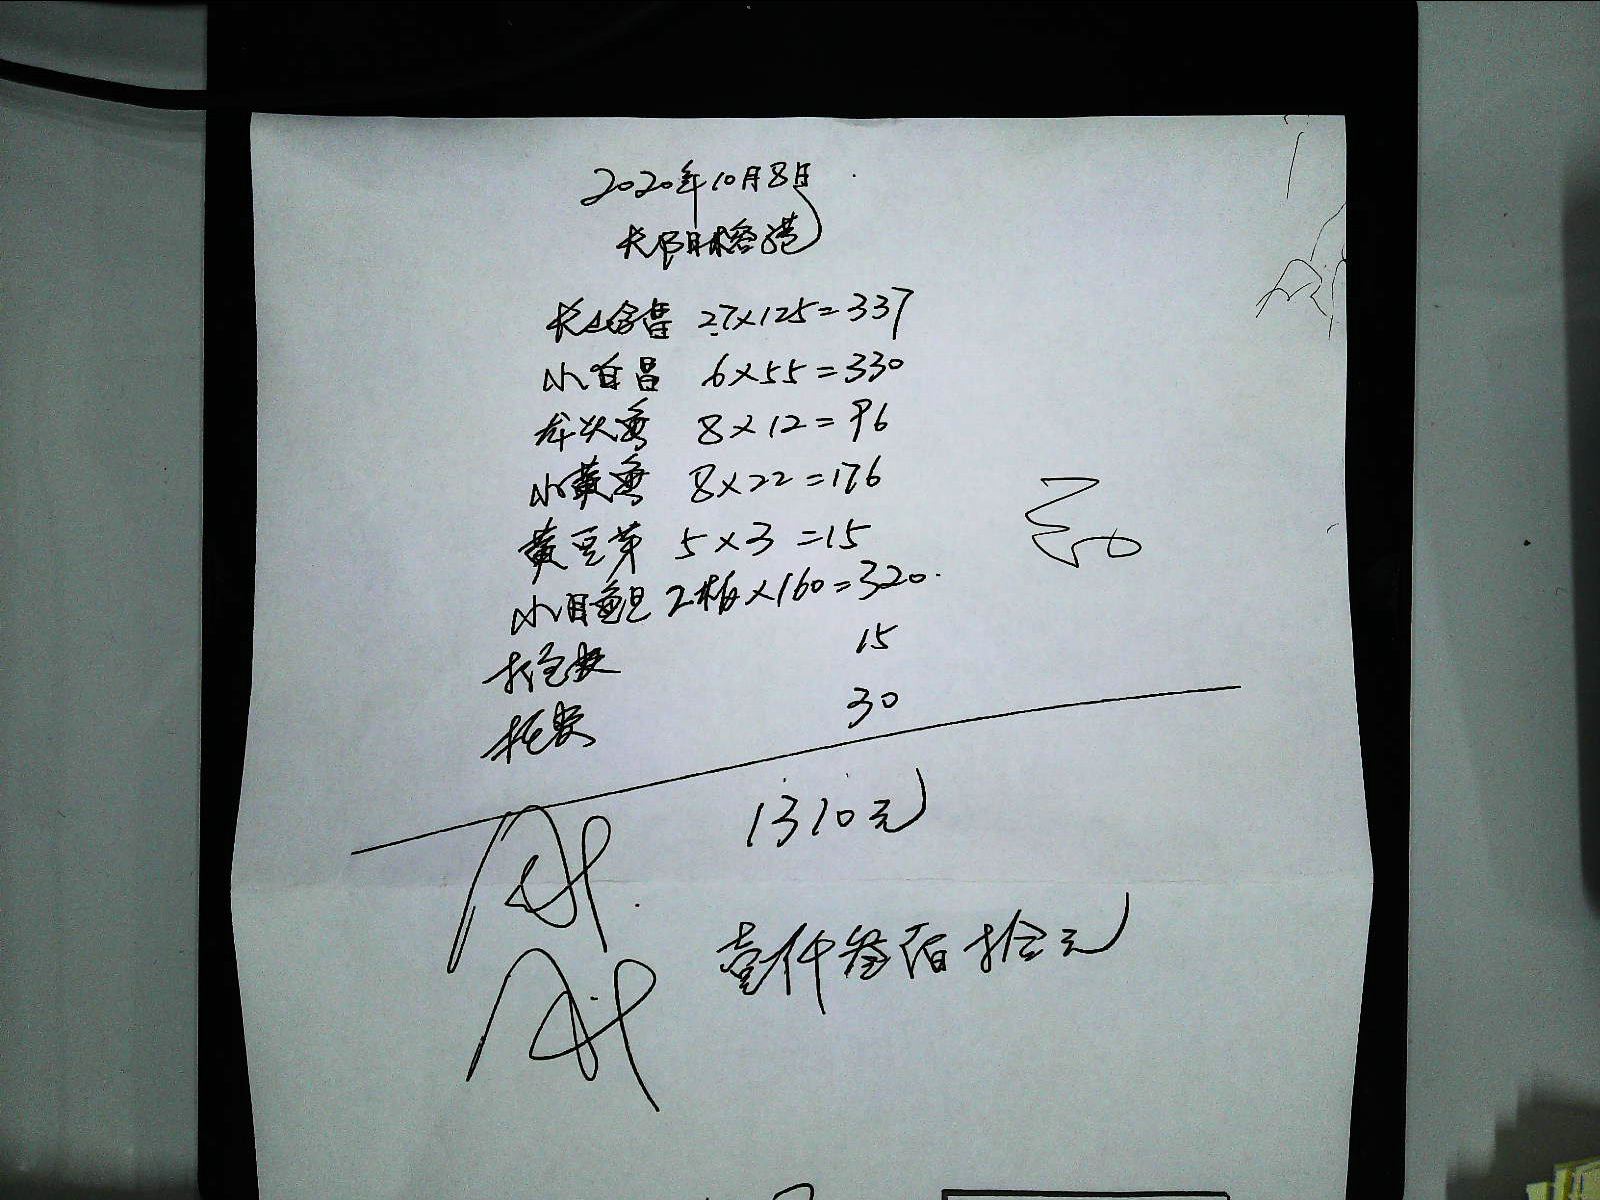 2020年10月8日
长阳榕港
27×125=337
小白昌 6×55=330
龙头鱼 8×12=96
小黄鱼 8×22=176
黄豆芽 5×3=15
小目鱼 2板×160=320
打包 15
托 30
1310元
壹仟叁佰拾元